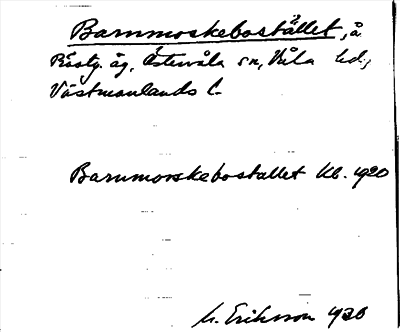 Barnmorskebostället, å
Rästg. äg, Östervåla sn, Våla hd.,
Västmanlands l.
Barnmorskebostallet kb. 1920
M. Eriksson 1930